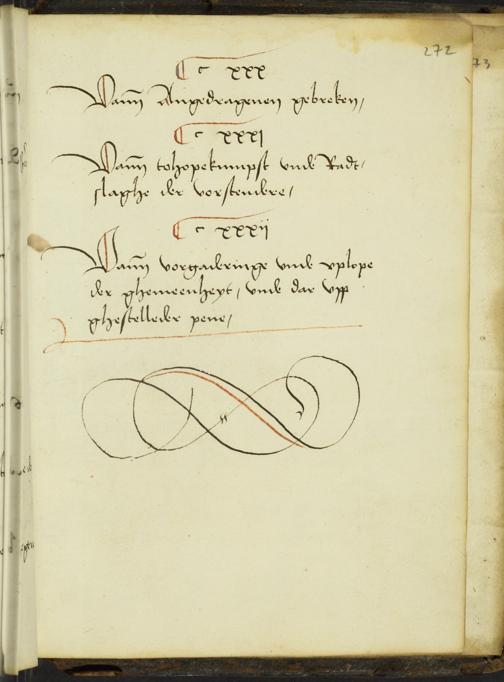 272
73
C xxx
Vann Angedragenen gebreken,
C xxxi
Vann tohopekumpst vnde Radt,
slaghe der vorstendere,
C xxxii
Vann vorgaderinge vnde vplope
der ghemeenheyt, vnde dar vpp
ghestelleder pene,